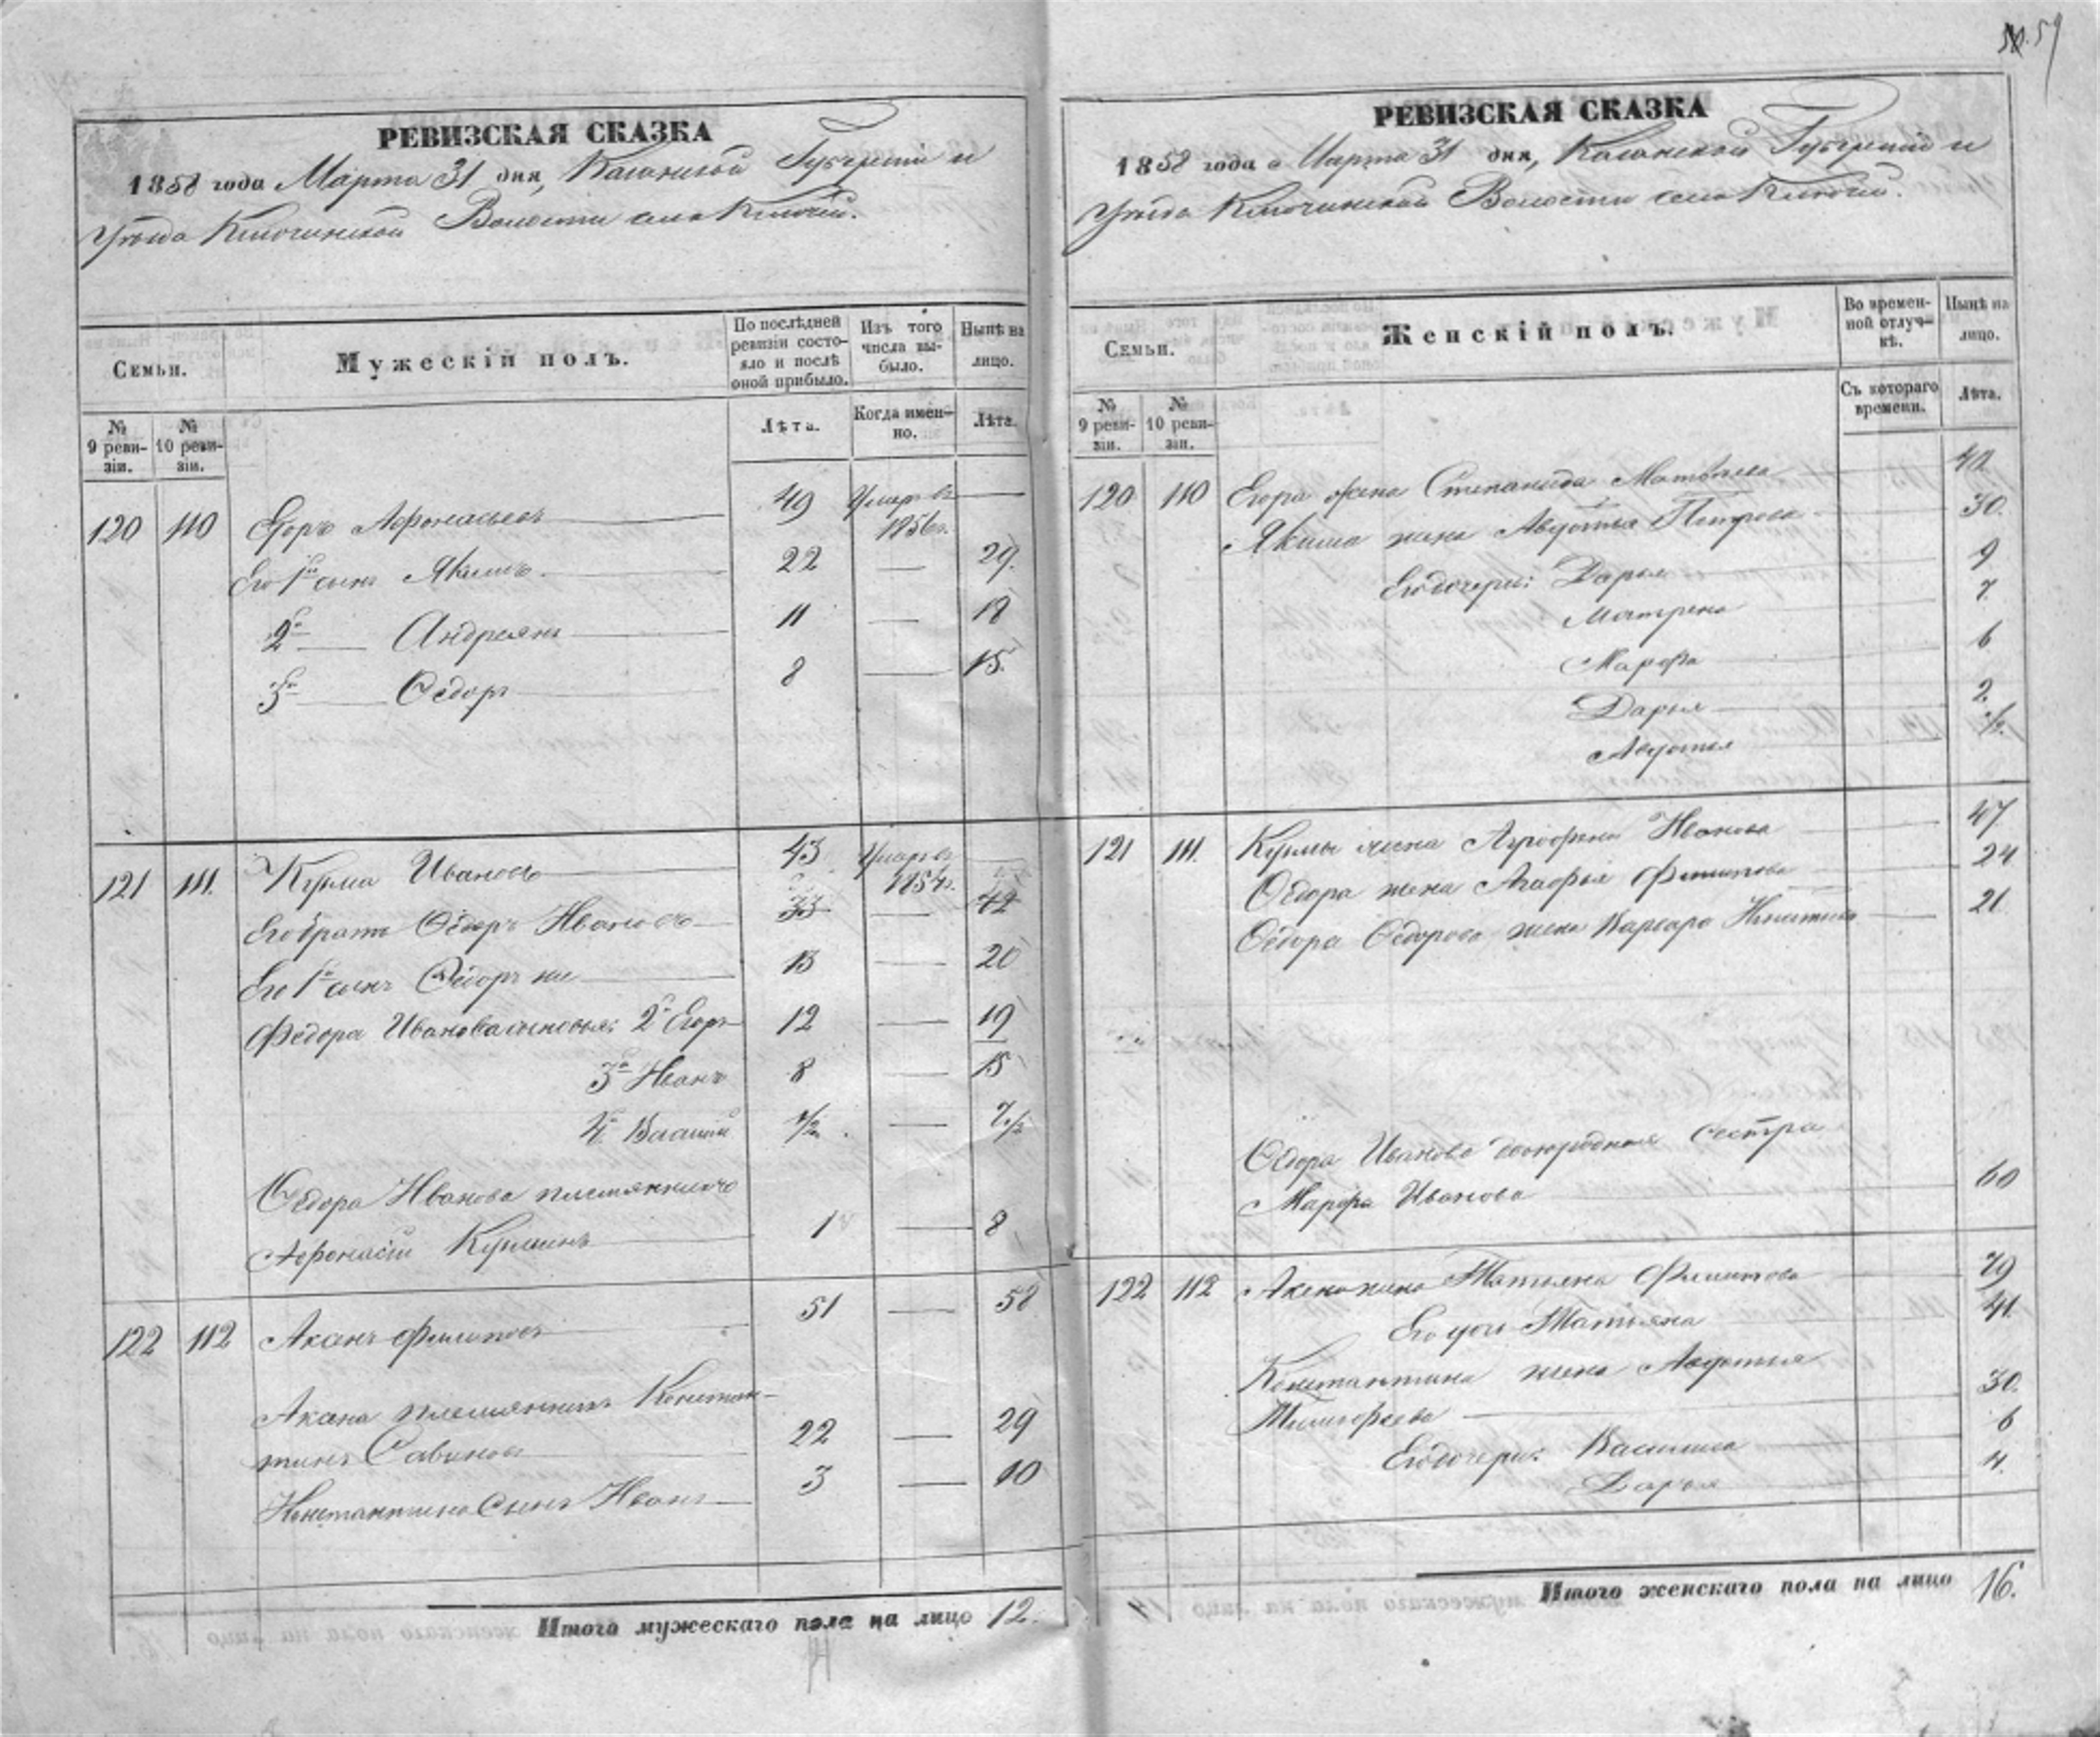 59
РЕВИЗСКАЯ СКАЗКА
1858 года Марта 31 дня, Казанской Губерніи и
Уѣзда Ключинской Волости села Ключей.
Семьи.
Мужескій полъ.
По послѣдней ревизіи состояло и послѣ оной прибыло.
Изъ того числа выбыло.
Нынѣ на лицо.
№ 9 ревизіи.
№ 10 ревизіи.
Лѣта.
Когда именно.
Лѣта.
120 110 Егоръ Афонасьевъ 49 Умеръ въ 1856г.
Его 1й сынъ Якимъ 22 — 29.
2й — Андреянъ 11 — 18
3й — Ѳедоръ 8 — 15.
121 111. Кузма Ивановъ 43 Умеръ въ 1854г.
Его братъ Ѳедоръ Ивановъ 33 — 42
Его 1й сынъ Ѳедоръ же 13 — 20
Федора Иванова сыновья: 2й Егоръ 12 — 19
3й Иванъ 8 — 15
4й Василій 1/2 — 7 1/2
Ѳедора Иванова племянникъ
Афонасій Кузминъ 1 — 8
122 112 Аканъ Филиповъ 51 — 58
Акана племянникъ Констан-
тинъ Савиновъ 22 — 29
Константина сынъ Иванъ 3 — 10
Итого мужескаго пола на лицо 12.
РЕВИЗСКАЯ СКАЗКА
1858 года Марта 31 дня, Казанской Губерніи и
Уѣзда Ключинской Волости села Ключей.
Семьи.
Женскій полъ.
Во временной отлучкѣ.
Нынѣ на лицо.
№ 9 ревизіи.
№ 10 ревизіи.
Съ котораго времени.
Лѣта.
120 110 Егора жена Степанида Матвѣева
Якима жена Авдотья Петрова 30.
Его дочери: Дарья 9
Матрена 7.
Марфа 6
Дарья 2.
Авдотья 1/2.
121 111. Кузмы жена Агрофена Иванова 47
Ѳедора жена Агафья Филипова 24
Ѳедора Ѳедорова жена Варвара Никитина 21
Ѳедора Иванова двоюродная сестра
Марфа Иванова 60
122 112 Акана жена Татьяна Филипова
Его дочь Татьяна 41.
Константина жена Авдотья
Тимофеева 30.
Его дочери: Василиса 6
Дарья 4.
Итого женскаго пола на лицо 16.